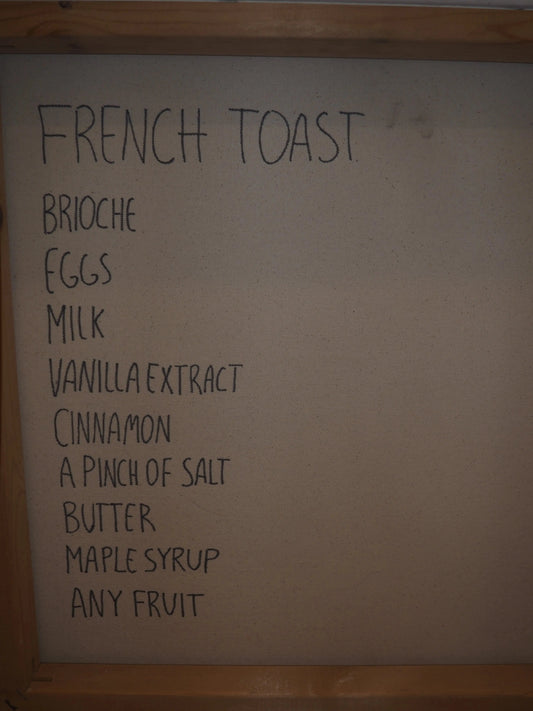 FRENCH TOAST
BRIOCHE
EGGS
MILK
VANILLA EXTRACT
CINNAMON
A PINCH OF SALT
BUTTER
MAPLE SYRUP
ANY FRUIT